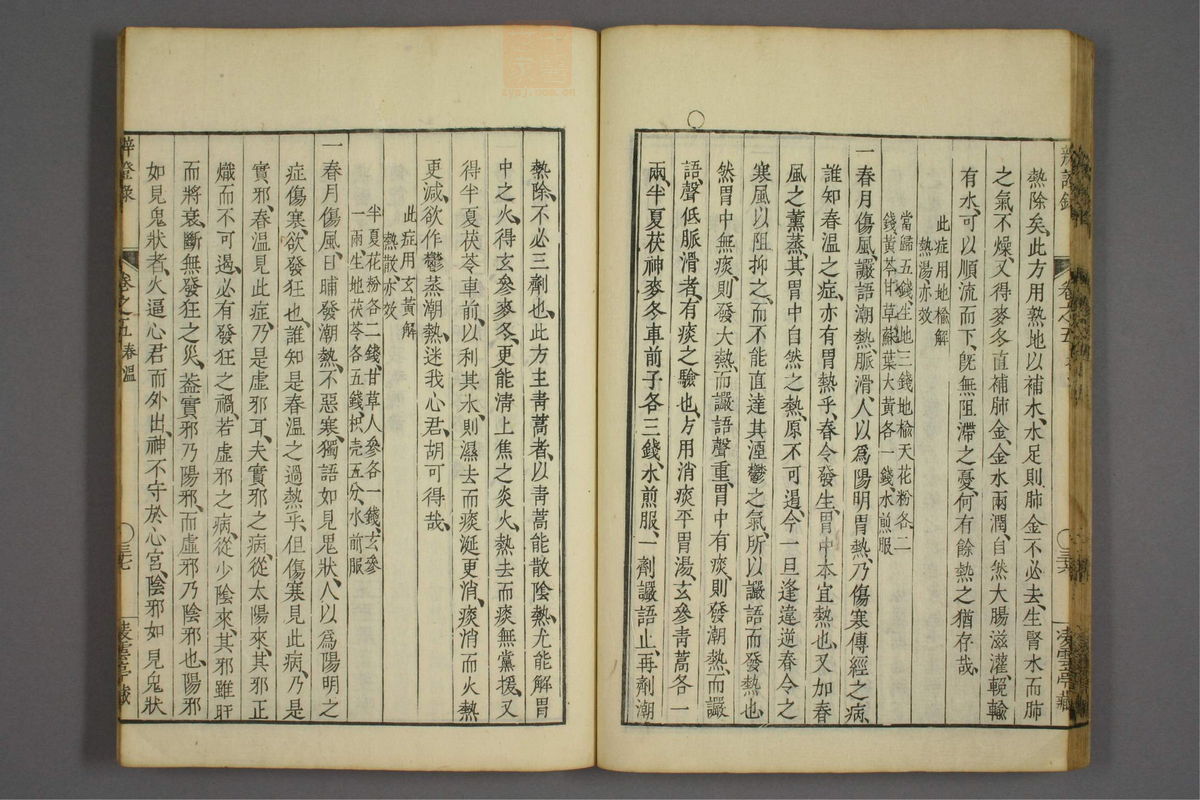 熱除矣、此方用熟地以補水、水足則肺金不必去、生腎水而肺
之氣不燥、又得麥冬直補肺金、金水兩潤、自然大腸滋灌、輗輪
有水、可以順流而下、旣無阻滯之憂、何有餘熱之猶存哉、
此症用地榆解
熱湯亦效
當歸五錢、生地三錢、地榆天花粉各二
錢、黃芩甘草蘇葉大黃各一錢、水煎服
一春月傷風、讝語潮熱、脈滑、人以爲陽明胃熱、乃傷寒傳經之病、
誰知春溫之症、亦有胃熱乎、春令發生、胃中本宜熱也、又加春
風之薰蒸、其胃中自然之熱、原不可遏、今一旦逢違逆春令之
寒風以阻抑之、而不能直達其湮鬱之氣、所以讝語而發熱也、
然胃中無痰、則發大熱、而讝語聲重、胃中有痰、則發潮熱、而讝
語、聲低脈滑者、有痰之驗也、方用消痰平胃湯、玄參靑蒿各一
兩、半夏茯神麥冬車前子各三錢、水煎服、一劑讝語止、再劑潮
卷之五
三六
凌雲亭藏
熱除、不必三劑也、此方主靑蒿者、以靑蒿能散陰熱、尤能解胃
中之火、得玄參麥冬、更能淸上焦之炎火、熱去而痰無黨援、又
得半夏茯苓車前、以利其水、則濕去而痰涎更消、痰消而火熱
更減、欲作鬱蒸潮熱、迷我心君、胡可得哉、
此症用玄黃解
熱散亦效
半夏花粉各二錢、甘草人參各一錢、玄參
一兩、生地茯苓各五錢、枳壳五分、水煎服
一春月傷風、日晡發潮熱、不惡寒、獨語如見鬼狀、人以爲陽明之
症傷寒、欲發狂也、誰知是春溫之過熱乎、但傷寒見此病、乃是
實邪、春溫見此症、乃是虛邪耳、夫實邪之病、從太陽來、其邪正
熾而不可遏、必有發狂之禍、若虛邪之病、從少陰來、其邪雖旺
而將衰、斷無發狂之災、葢實邪乃陽邪、而虛邪乃陰邪也、陽邪
如見鬼狀者、火逼心君而外出、神不守於心宮、陰邪如見鬼狀
辨證錄
卷之五
春溫
三七
凌雲亭藏